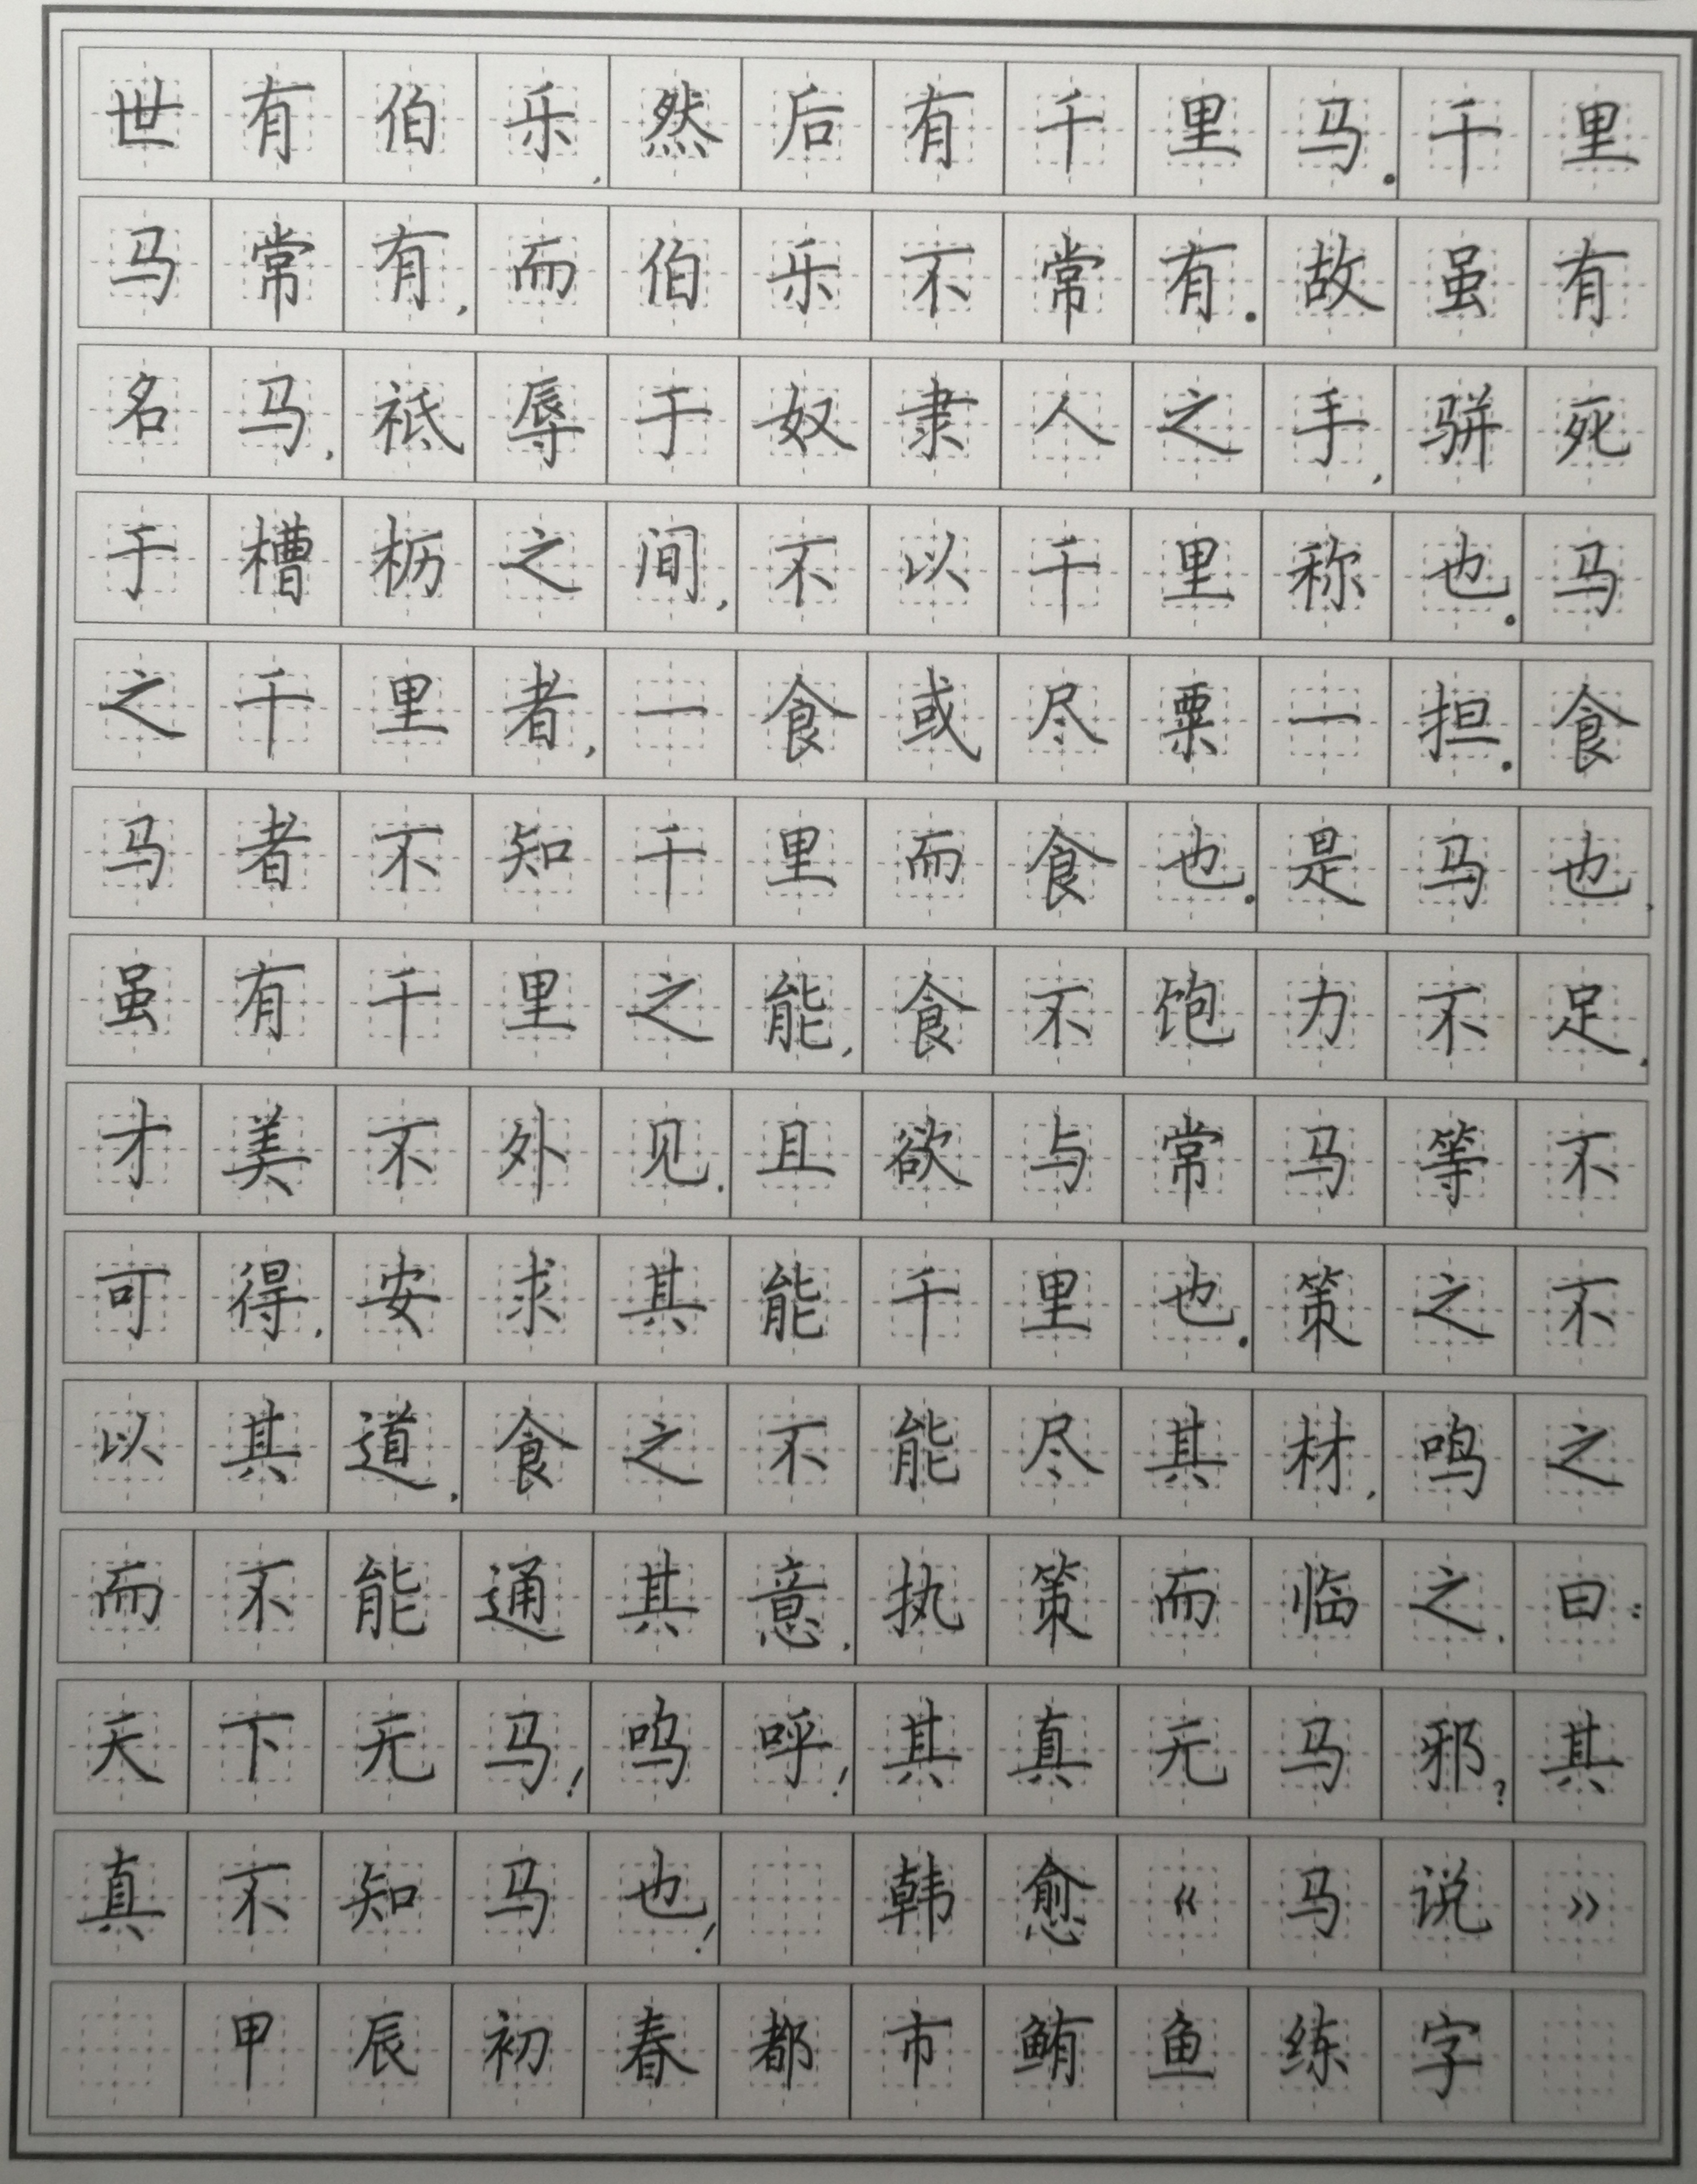 世有伯乐,然后有千里马.千里
马常有,而伯乐不常有.故虽有
名马,祗辱于奴隶人之手,骈死
于槽枥之间,不以千里称也.马
之千里者,一食或尽粟一担.食
马者不知千里而食也.是马也,
虽有千里之能,食不饱力不足,
才美不外见.且欲与常马等不
可得,安求其能千里也.策之不
以其道,食之不能尽其材,鸣之
而不能通其意,执策而临之,曰:
天下无马!呜呼!其真无马邪?其
真不知马也! 韩愈《马说》
甲辰初春都市鲔鱼练字